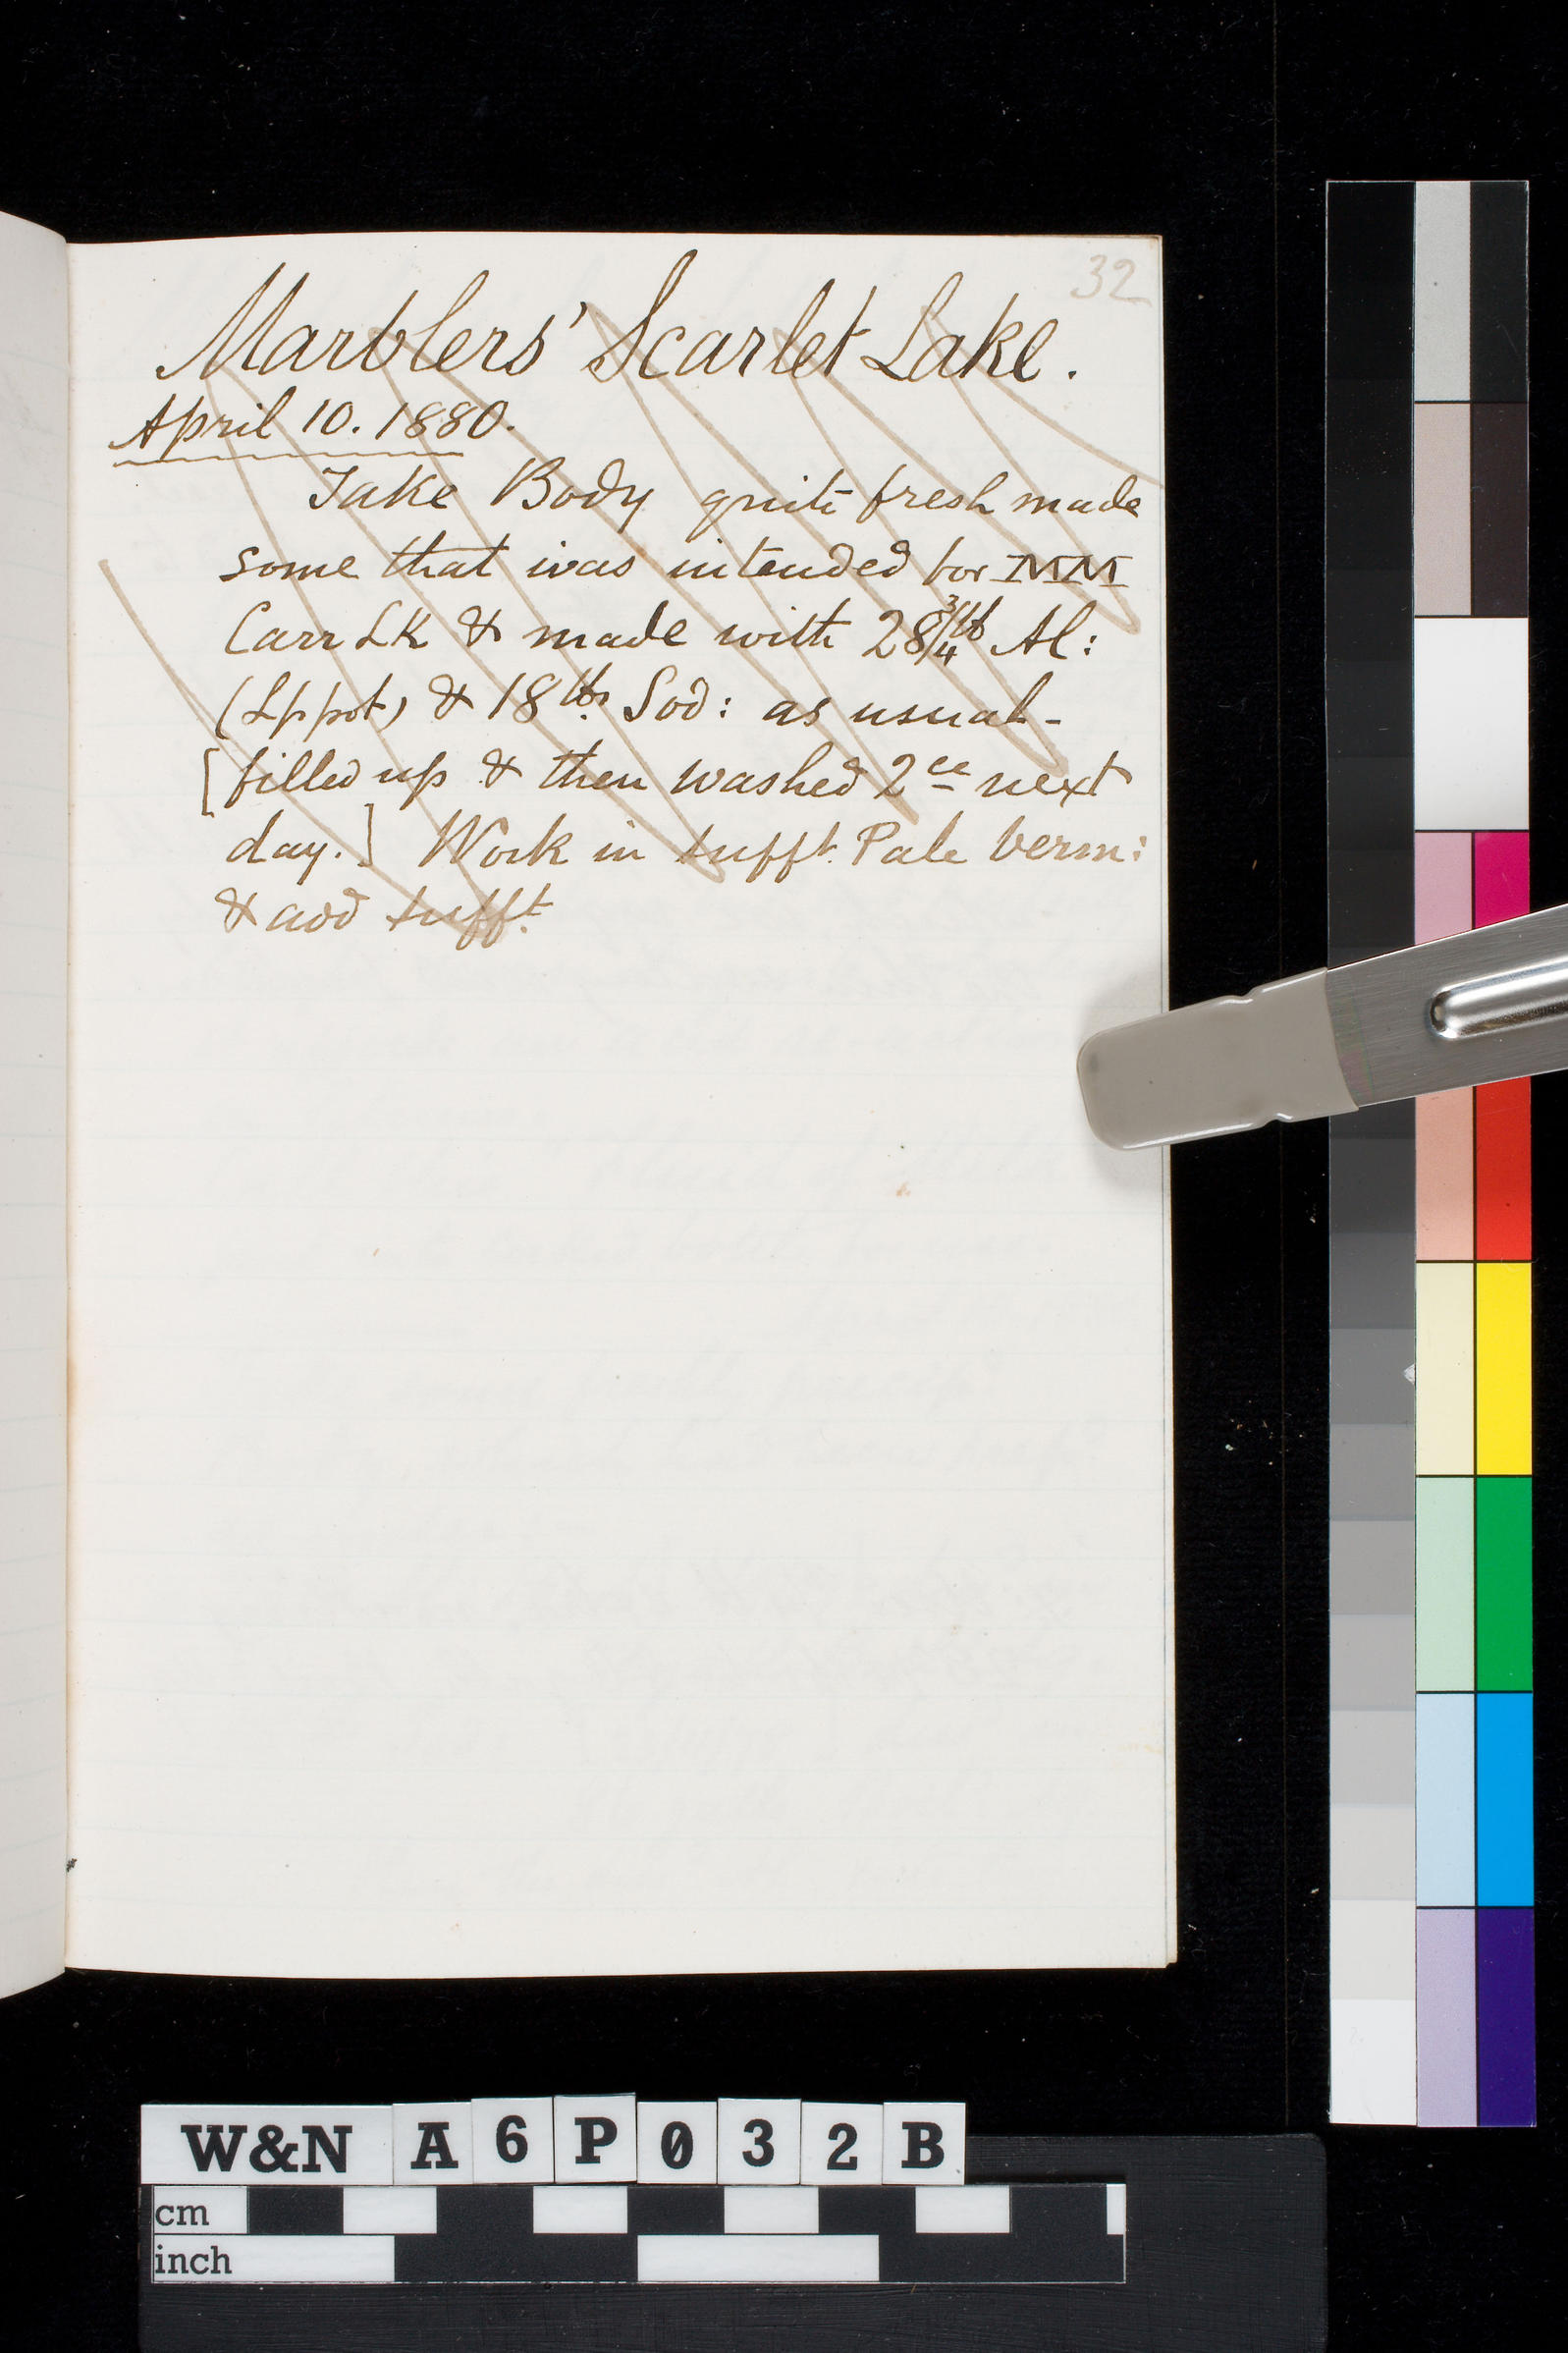 32
Marblers' Scarlet Lake.
April 10. 1880.
Take Body quite fresh made
some that was intended for MM
Carr LK & made with 28 3/4 lb Al:
(Lppot) & 18 lbs. Sod: as usual-
[filled up & then washed 2ce next
day.] Work in sufft. Pale Verm:
& add sufft.
W&N A6P032B
cm
inch